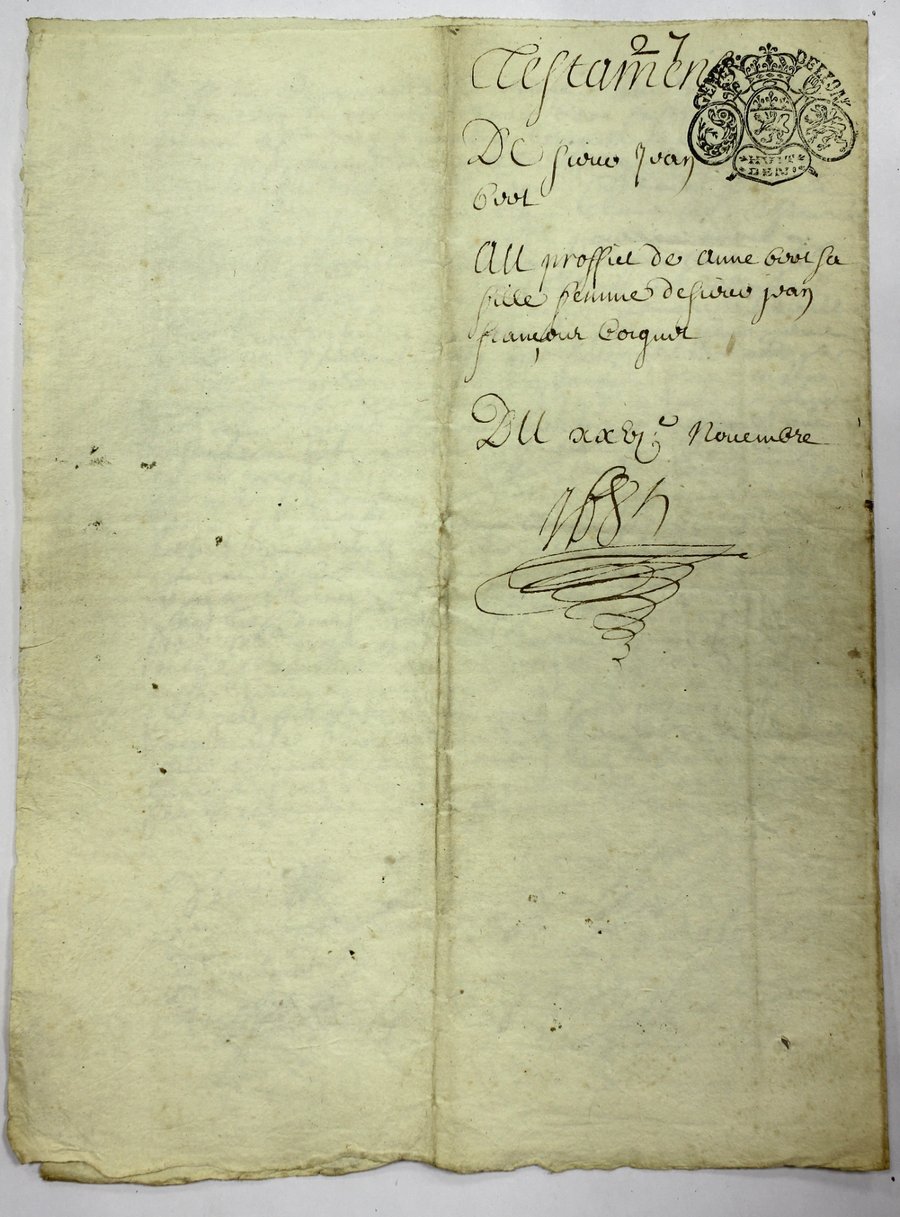 27
Testament
GENER. DE LYON
HUIT
DEN
De sieur Jean
Bort
Au proffict de Anne Bort sa
fille femme de sieur jean
françois
Du xxvj.e Nouembre
1685